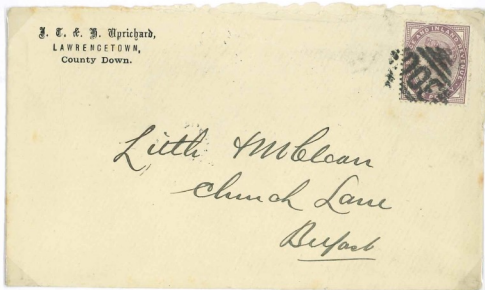 J. T. & H. Uprichard,
LAWRENCETOWN,
County Down.
Little & McClean
Church Lane
Belfast